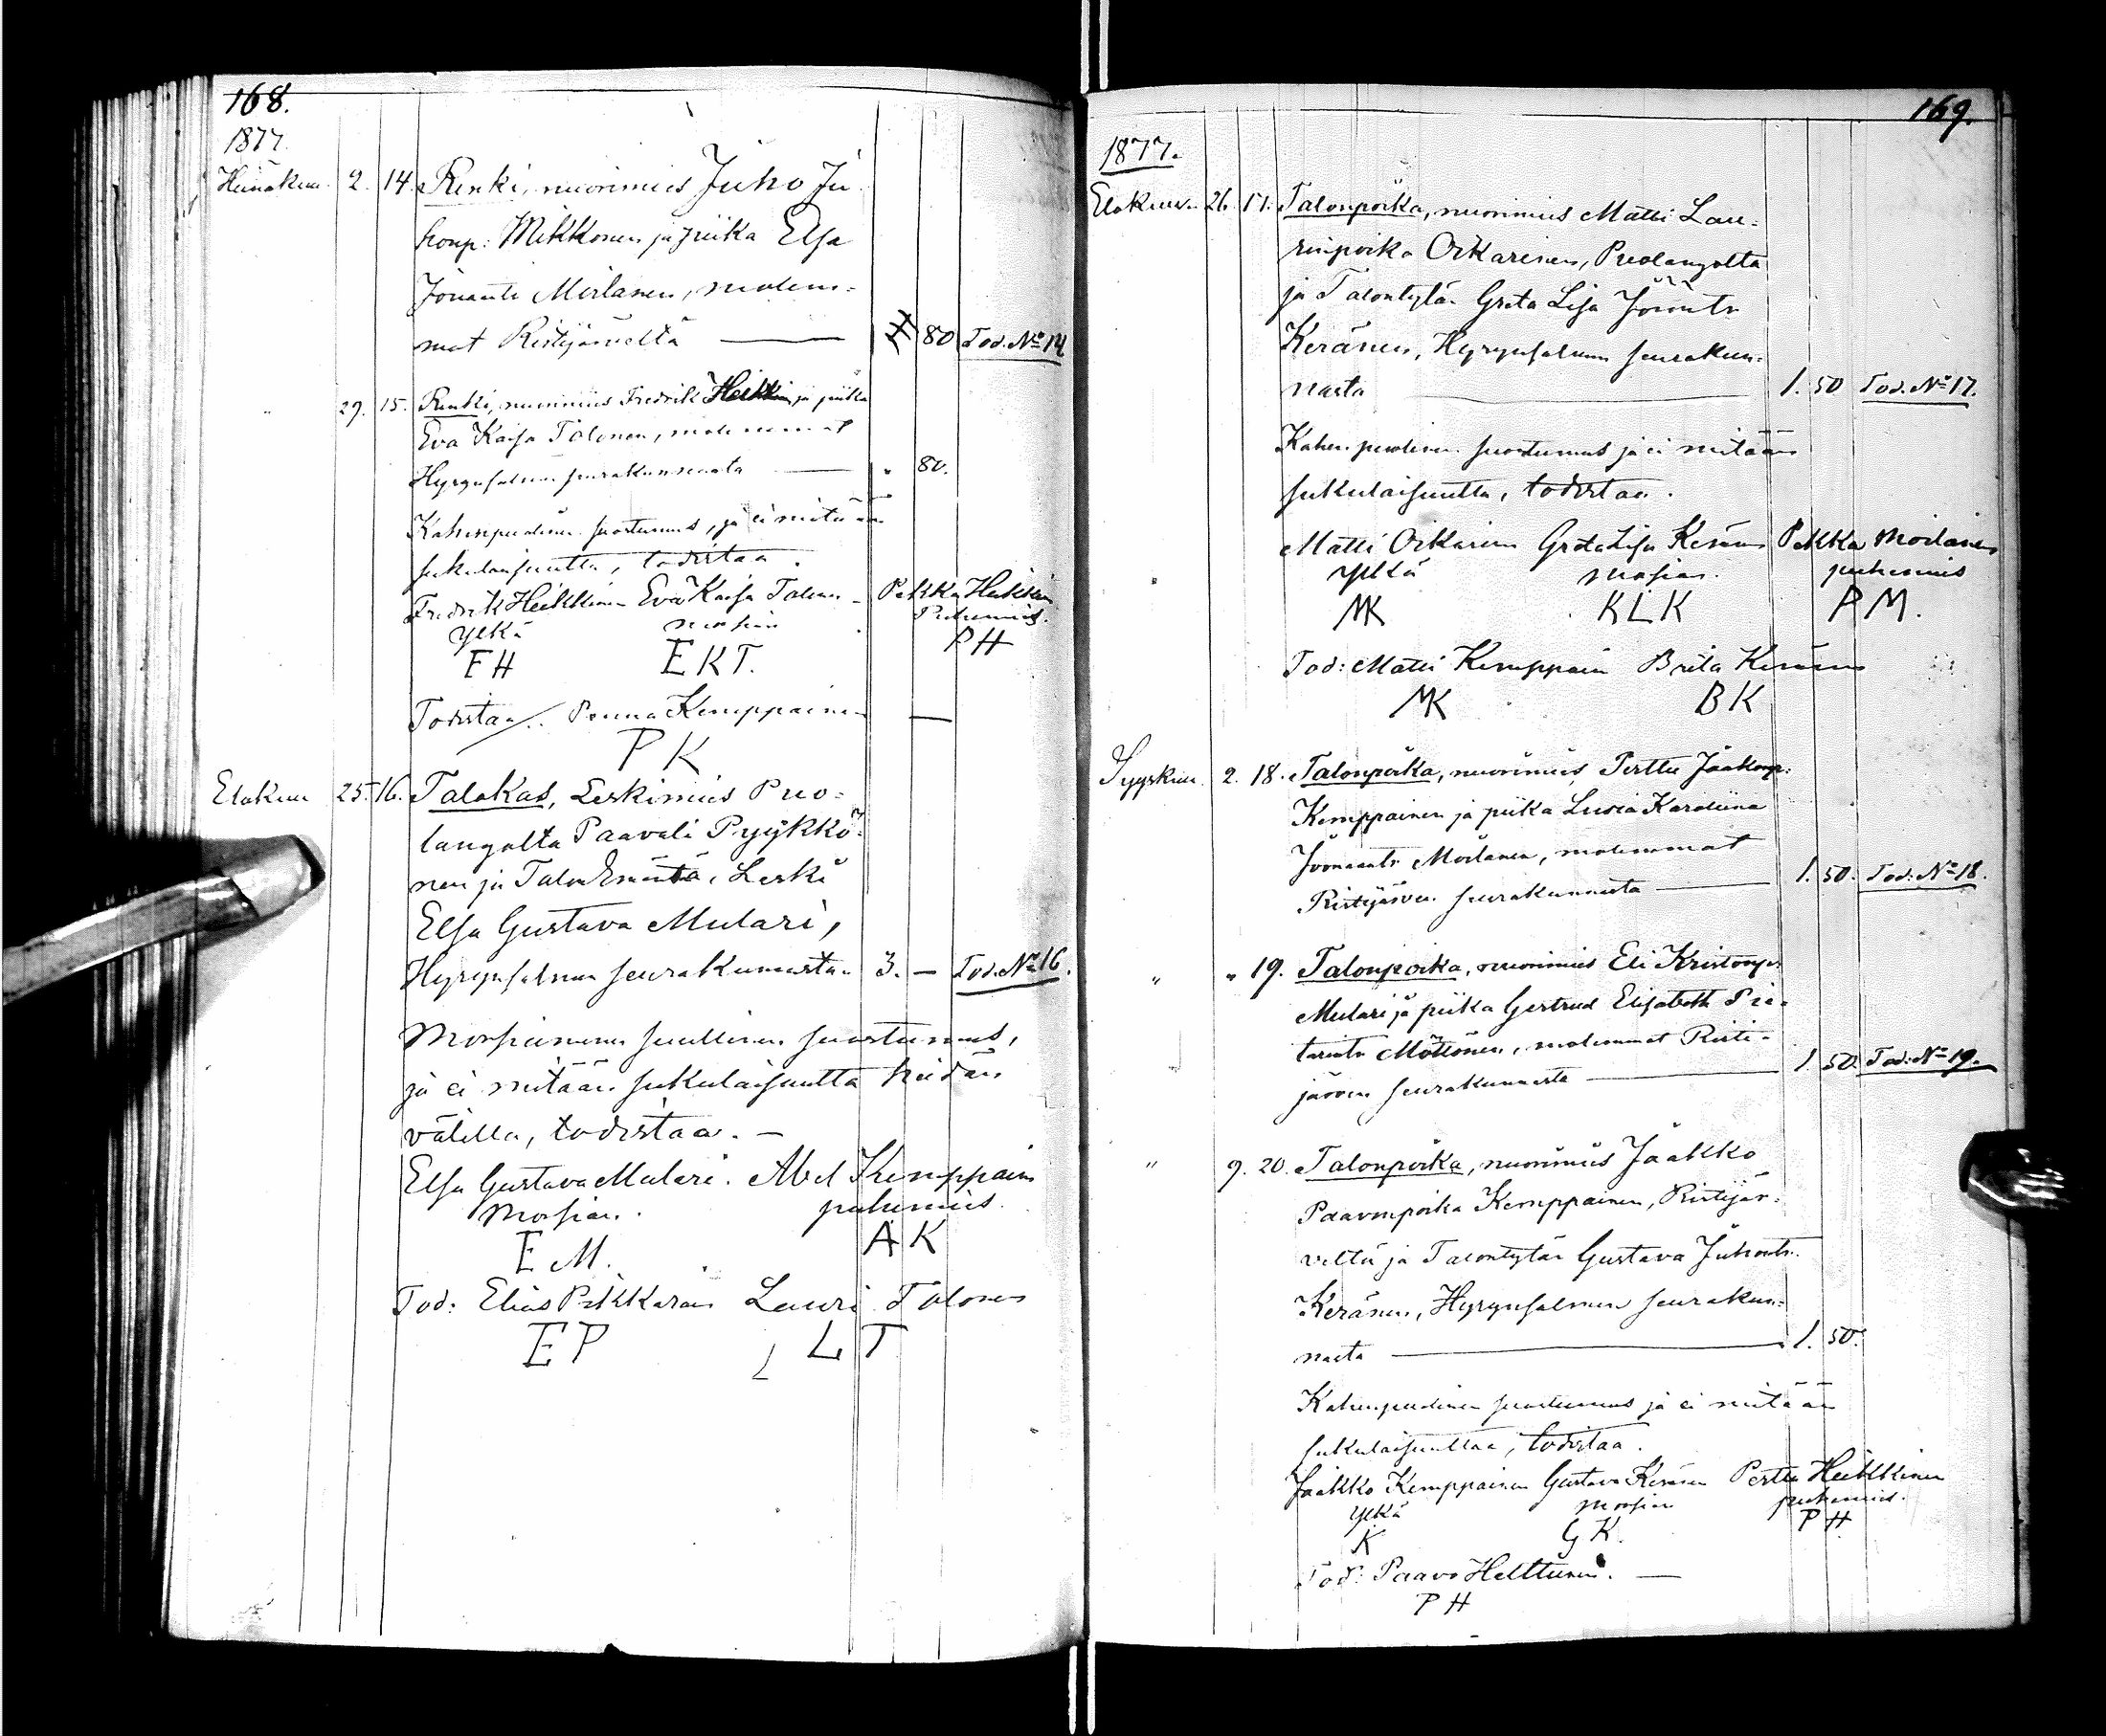 168.
1877.
Heinäkuu. 2. 14. Renki, nuorimies Juho Ju-
honp: Mikkonen ja piika Elsa
Jonaant: Moilanen, molem-
mat Ristijärveltä — 80 Tod. No 14
" 29. 15. Renki, nuorimies Fredrik Heikkinen ja piika
Eva Kaisa Tolonen, molemmat
Hyrynsalmen seurakunnasta — " 80.
Kahenpuolinen suostumus, ja ei mitään
sukulaisuutta, todistaa.
Fredrik Heikkinen Eva Kaisa Tolonen Pekka Heikkinen
Ylkä morsian Puhemies.
FH EKT. PH
Todistaa: Penna Kemppainen —
PK
Elokuu 25. 16. Talokas, Leskimies Puo-
langolta Paavali Pyykkö-
nen ja Talon Emäntä, Leski
Elsa Gustava Mulari,
Hyrynsalmen seurakunnasta. 3. — Tod. No 16.
Morsiamen suullinen suostumus,
ja ei mitään sukulaisuutta heidän
välillä, todistaa. —
Elsa Gustava Mulari. Abel Kemppainen
Morsian. puhemies.
E M. A K
Tod: Elias Pikkarainen Lauri Tolonen
EP L LT
169.
1877.
Elokuu. 26. 17. Talonpoika, nuorimies Matti Lau-
rinpoika Oikarinen, Puolangolta
ja Talontytär Greta Lisa Jöönt:
Keränen, Hyrynsalmen seurakun-
nasta — 1. 50 Tod. No 17.
Kahenpuolinen suostumus ja ei mitään
sukulaisuutta, todistaa.
Matti Oikarinen Greta Lisa Keränen Pekka Moilanen
Ylkä morsian. puhemies
MK KLK PM.
Tod: Matti Kemppainen Brita Keränen
MK BK
Syyskuu. 2. 18. Talonpoika, nuorimies Perttu Jaakonp:
Kemppainen ja piika Lusia Karoliina
Joonaant: Moilanen, molemmat
Ristijärven seurakunnasta — 1. 50. Tod: No 18.
" " 19. Talonpoika, nuorimies Eli Ristonp:
Mulari ja piika Gertrud Elisabeth Pie-
tarint: Möttönen, molemmat Risti-
järven seurakunnasta — 1. 50. Tod: No 19.
" 9. 20. Talonpoika, nuorimies Jaakko
Paavonpoika Kemppainen, Ristijär-
veltä ja Talontytär Gustava Juhont:
Keränen, Hyrynsalmen seurakun-
nasta — 1. 50.
Kahenpuolinen suostumus ja ei mitään
sukulaisuuttaa, todistaa.
Jaakko Kemppainen Gustava Keränen Perttu Heikkinen
Ylkä morsian puhemies.
K G K. PH
Tod: Paavo Helttunen. —
PH